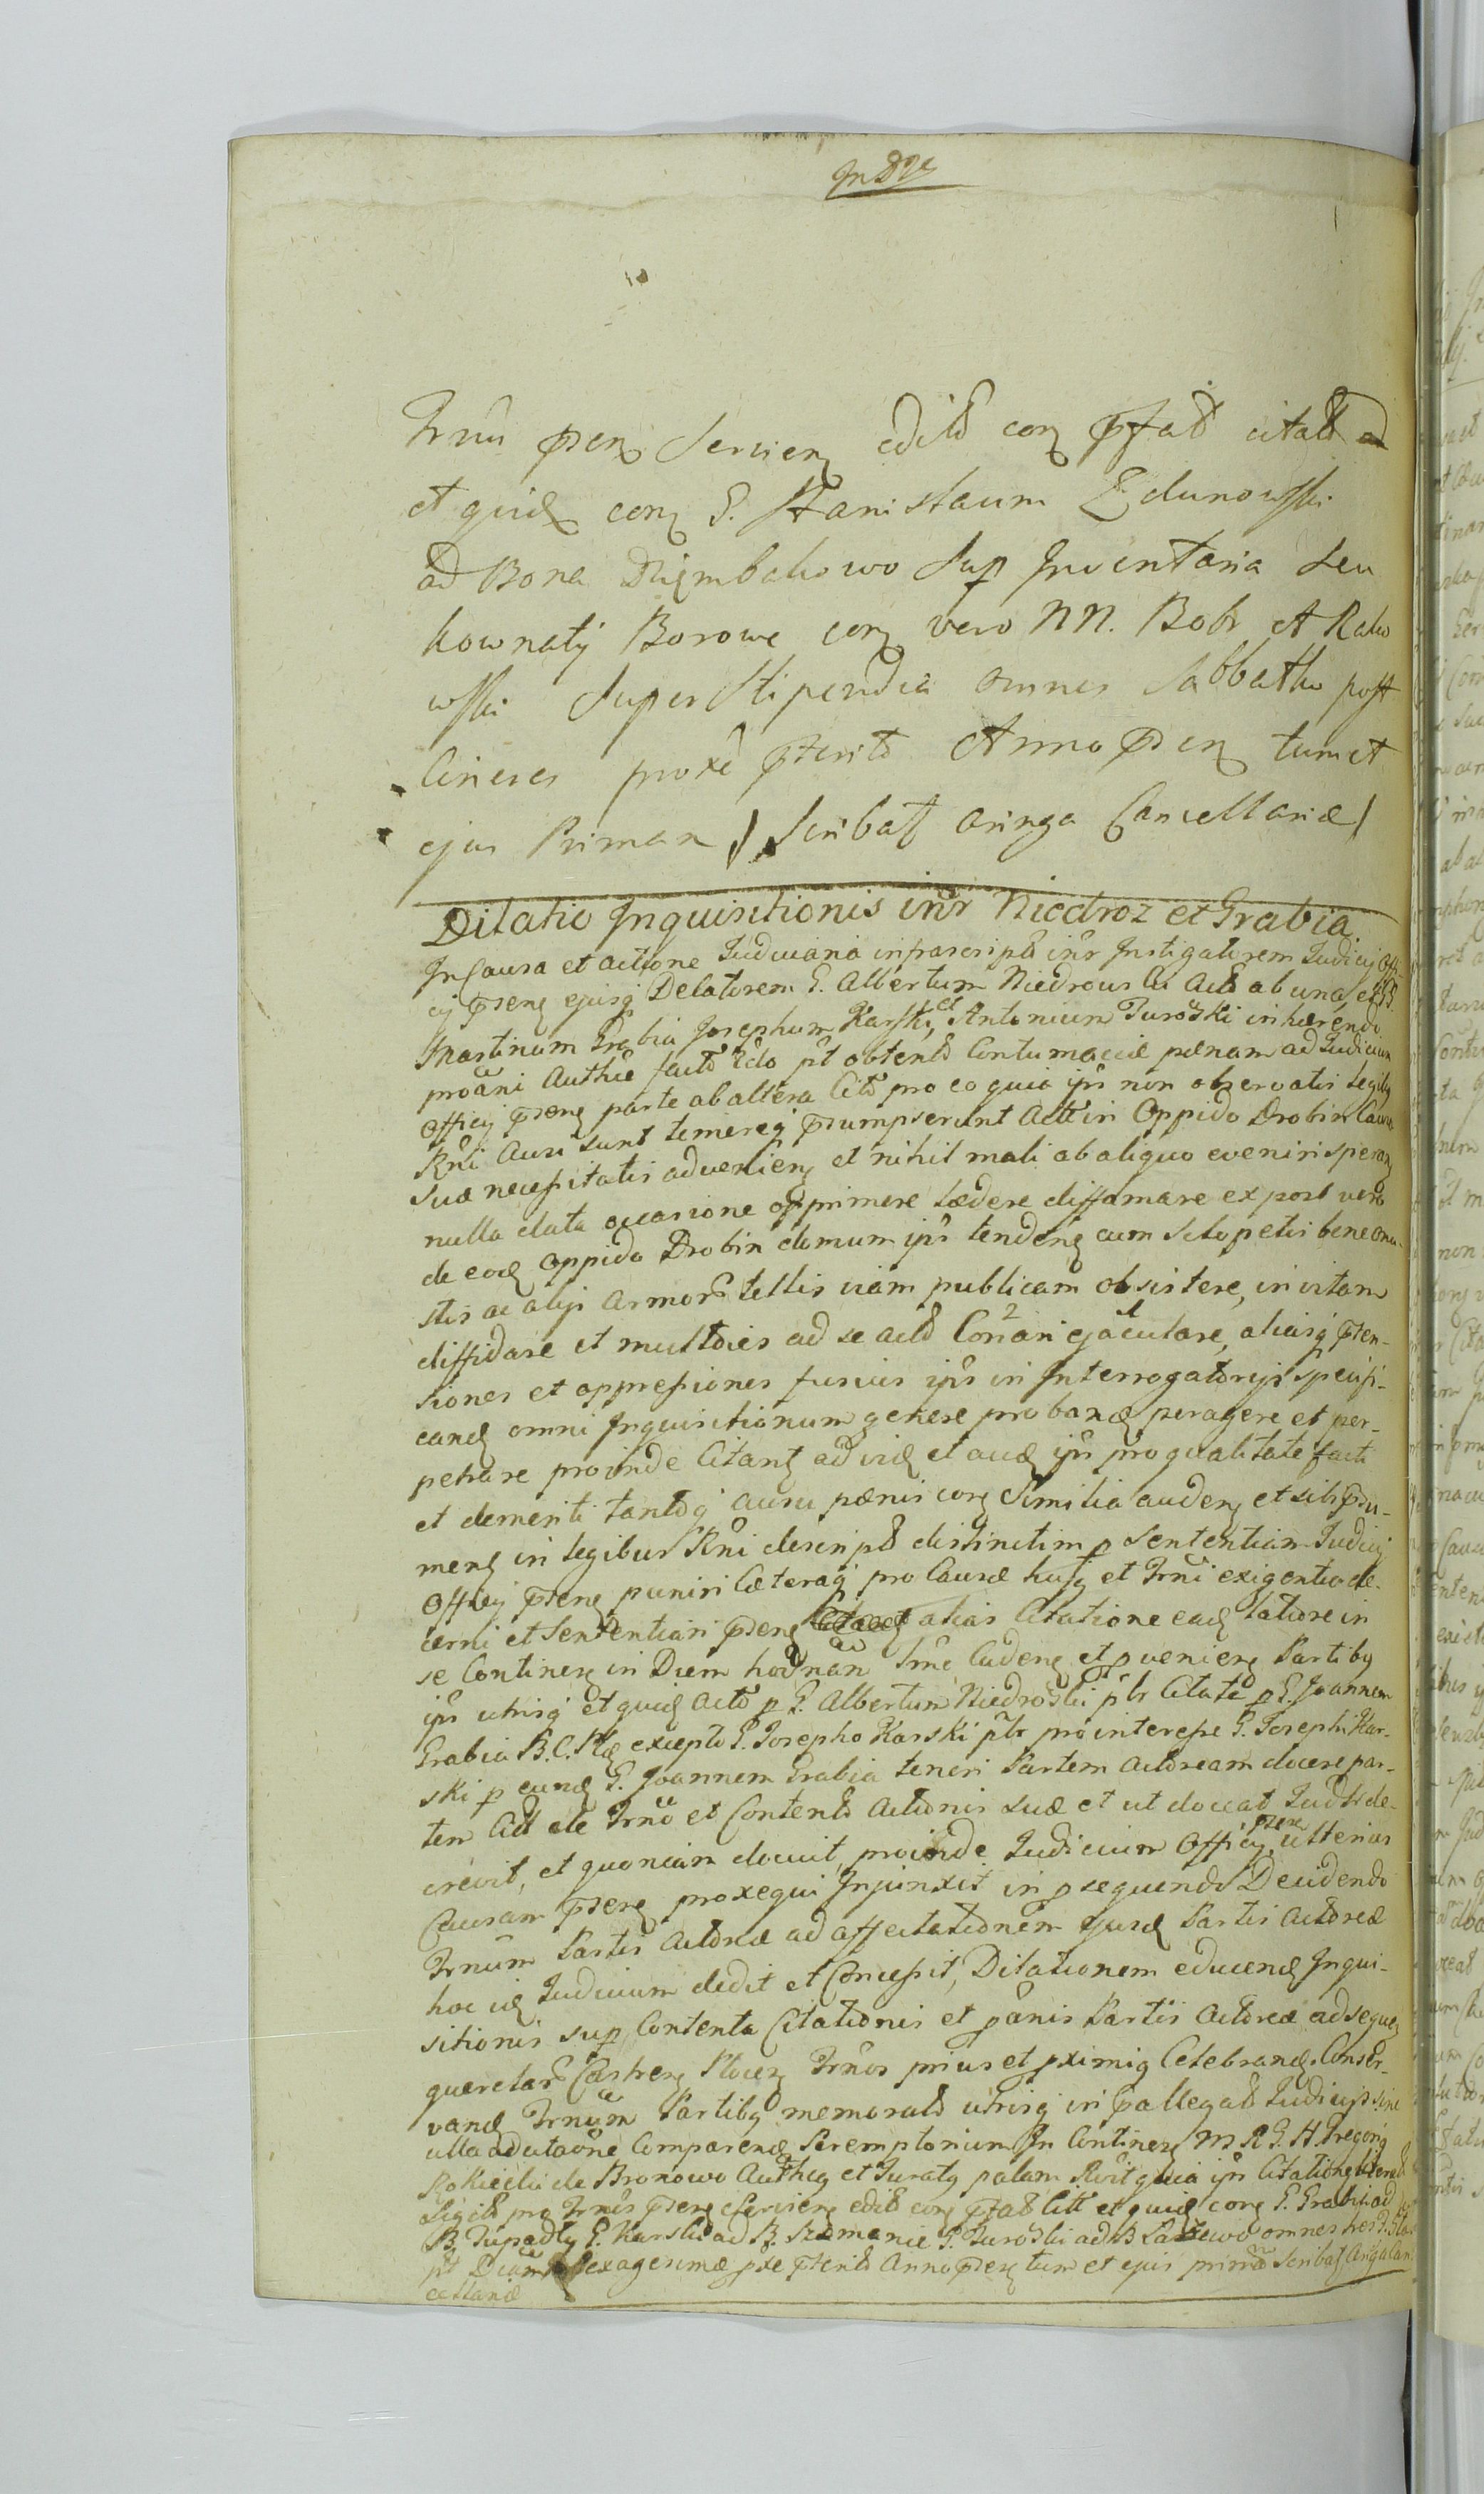 et quid con G. Stanislaum Zdunowski
ad Bona Dziembakowo Sup Inventaria seu
kownaty Borowe con vero NN. Bobr et Rako
wski super Stipendia omnes Sabbatho post
Cineres proxe pterito Anno psen tum et
ejus Priman Scribat aringa Cancellariæ
Dilatio Inquisitionis intr Niedroz et Grabia
In Causa et actione Judiciaria infrascripta intr Instigatorem Judicij Offi
cij psen ejusq Delatorem G. Albertum Niedrowski Act ab una, et G.
Martinum Grabia Josephum Karski, et Antonium Turoski inhærendo
Officij psen parte ab altera Citt pro eo quia ipsi non observatis Legibus
Rni Ausi sunt temereq psumpserunt Act in Oppido Drobin Causa
suæ necessitatis advenien et nihil mali ab aliquo eveniri speran
nulla data occasione opprimere lædere diffamare ex post vero
de eod Oppido Drobin domum ipsi tenden cum Sclopetis bene onu-
stis ac alijs armor tellis viam publicam obsistere, invitam
diffidare et multoties ad se act Conari ejaculare, aliasq pten-
siones et oppressiones fusius ipsi in Interrogatorijs specifi-
cand omni Inquisitionum genere proband peragere et per-
petrare proinde Citant ad vid et aud ipsi pro qualitate facti
et demeriti tantoq ausu pænis con Similia auden et sibi psu-
men in legibus Rni descript distinctim p Sententiam Judicij
Officij psen puniri Cæteraq pro Causæ hujq et Trni exigentia de-
cerni et Sententiari psen alias Citatione ead latiore in
se Continen in Diem hodnan Sme Caden et pvenien Partibq
ipsi utrisq et quid Acto p G. Albertum Niedroski ptr Citate p G. Joannem
Grabia B.C. Plc excepto G. Josepho Karski ptr pro interesse G. Josephi Kar-
ski p eund G. Joannem Grabia teneri Partem Actoream docere par-
tem Citt de Trno et Contento Actionis suæ et ut doceat Judtr de-
crevit, et quoniam docuit, proinde Judicium Officij psen ulterius
Causam psen proxequi Injunxit in psequendo Decidendo
Trnum Partis Actoreæ ad affectationem ejusd Partis Actoreæ
hoc id Judicium dedit et Concessit, Dilationem educend Inqui-
sitionis sup Contenta Citationis et pánis Partis Actoreæ ad sequen
querelar Castren Plocen Trnos prius et pximiq Celebrand Conser-
vand Trnum Partibq memorat utrisq in pallegat Judicijs sine
ulla adcitaone Comparend Peremptorium In Continen M R G. H. Gregoriq
Rokicki de Bronowo Authcq et Juratq palam Rcvit quia ipse Citatione
Sigilt pro Trnis psen servien edit con pfat Citt et quid con G. Grabia ad
B. Tupadly G. Karski ad B. Szomanie G. Turoski ad B. omnes
Sexagesimæ pxe pterito Anno psen tum et ejus prima Scribat Aringa Can-
cellariæ